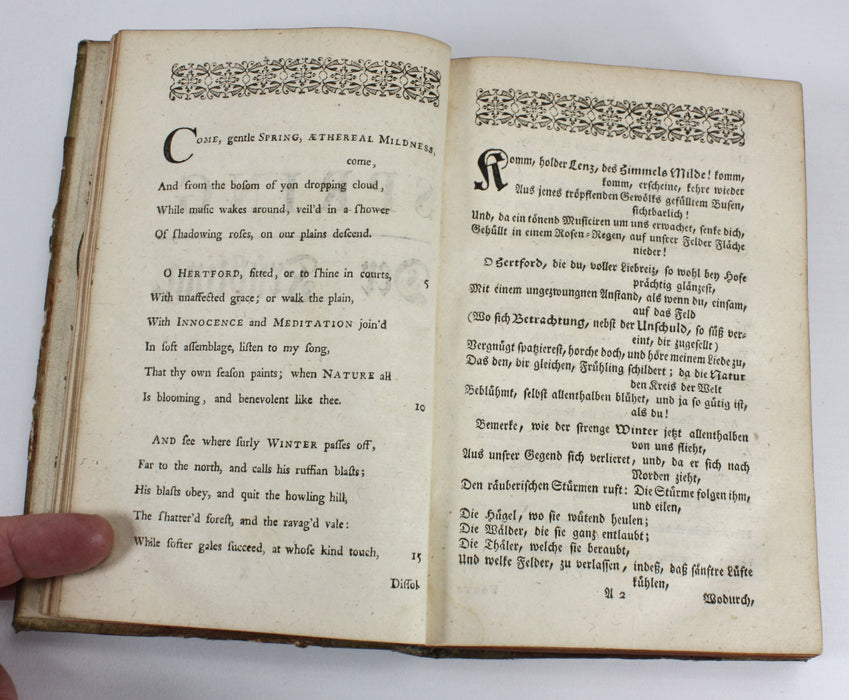 COME, gentle SPRING, ÆTHEREAL MILDNESS,
come,
And from the boſom of yon dropping cloud,
While muſic wakes around, veil'd in a ſhower
Of ſhadowing roſes, on our plains deſcend.
O HERTFORD, fitted, or to ſhine in courts,
5
With unaffected grace; or walk the plain,
With INNOCENCE and MEDITATION join'd
In ſoft aſſemblage, liſten to my ſong,
That thy own ſeaſon paints; when NATURE all
Is blooming, and benevolent like thee.
10
AND ſee where ſurly WINTER paſſes off,
Far to the north, and calls his ruffian blaſts;
His blaſts obey, and quit the howling hill,
The ſhatter'd foreſt, and the ravag'd vale:
While ſofter gales ſucceed, at whoſe kind touch,
15
Diſſol-
Komm, holder Lenz, des Himmels Milde! komm,
komm, erſcheine, kehre wieder
Aus jenes tröpflenden Gewölks gefülltem Buſen,
ſichtbarlich!
Und, da ein tönend Muſiciren um uns erwachet, ſenke dich,
Gehüllt in einem Roſen-Regen, auf unſrer Felder Fläche
nieder!
O Hertford, die du, voller Liebreiz, ſo wohl bey Hofe
prächtig glänzeſt,
Mit einem ungezwungnen Anſtand, als wenn du, einſam,
auf das Feld
(Wo ſich Betrachtung, nebſt der Unſchuld, ſo ſüß ver-
eint, dir zugeſellt)
Vergnügt ſpatziereſt, horche doch, und höre meinem Liede zu,
Das den, dir gleichen, Frühling ſchildert; da die Natur
den Kreis der Welt
Beblühmt, ſelbſt allenthalben blühet, und ja ſo gütig iſt,
als du!
Bemerke, wie der ſtrenge Winter jetzt allenthalben
von uns flieht,
Aus unſrer Gegend ſich verlieret, und, da er ſich nach
Norden zieht,
Den räuberiſchen Stürmen ruft: Die Stürme folgen ihm,
und eilen,
Die Hügel, wo ſie wütend heulen;
Die Wälder, die ſie ganz entlaubt;
Die Thäler, welche ſie beraubt,
Und welke Felder, zu verlaſſen, indeß, daß ſänftre Lüfte
kühlen,
A 2
Wodurch,